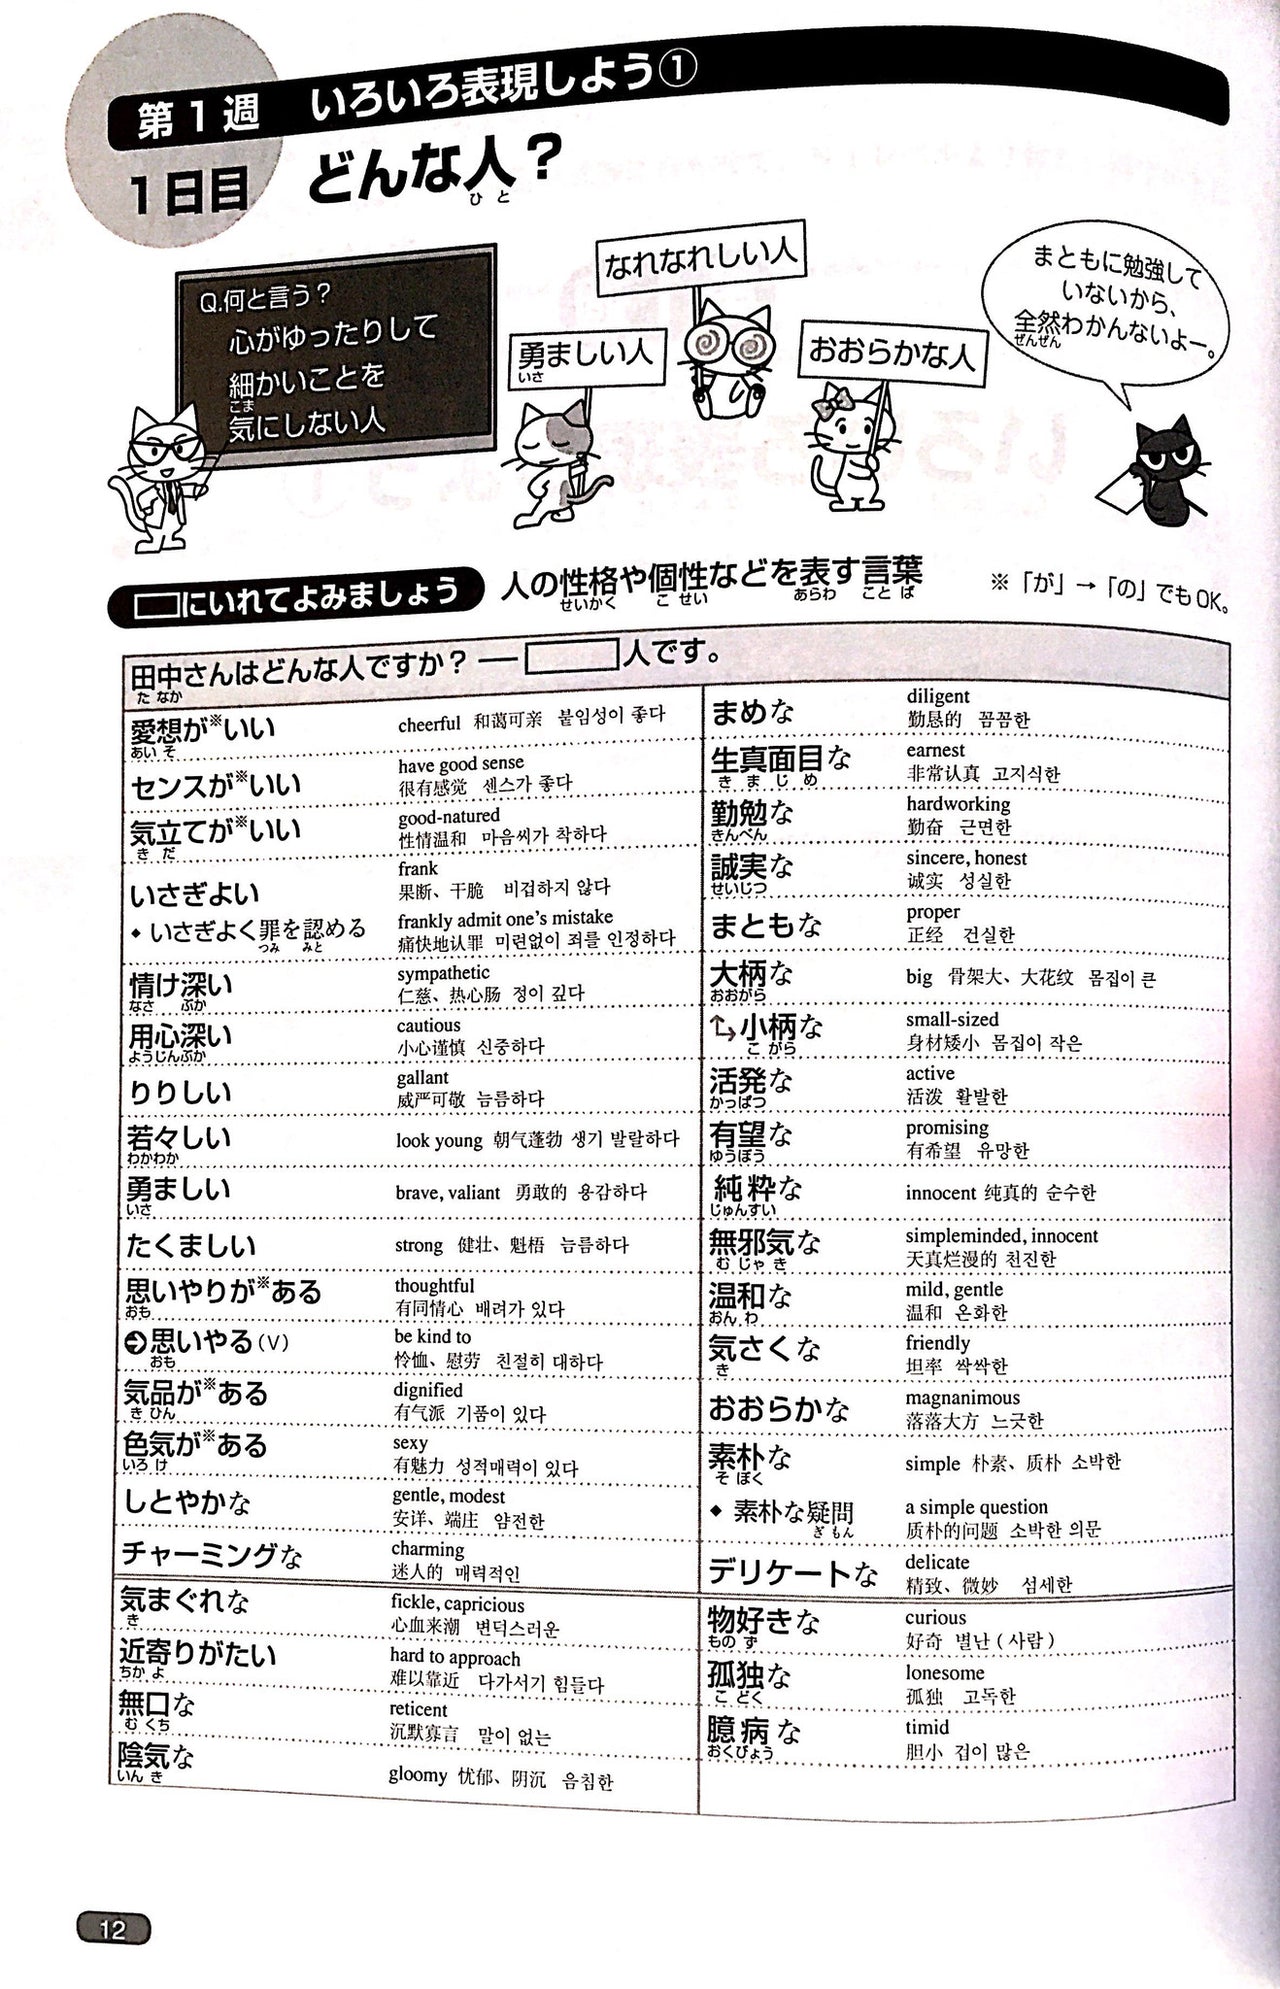 第1週 いろいろ表現しよう①
1日目 どんな人?
ひと
Q.何と言う?
心がゆったりして
細かいことを
こま
気にしない人
勇ましい人
いさ
なれなれしい人
おおらかな人
まともに勉強して
いないから、
全然わかんないよー。
ぜんぜん
□にいれてよみましょう 人の性格や個性などを表す言葉 ※「が」→「の」でもOK。
せいかく こせい あらわ ことば
田中さんはどんな人ですか? ― □人です。
たなか
愛想が※いい cheerful 和蔼可亲 붙임성이 좋다
あいそ
センスが※いい have good sense
很有感觉 센스가 좋다
気立てが※いい good-natured
きだ 性情温和 마음씨가 착하다
いさぎよい frank
果断、干脆 비겁하지 않다
◆ いさぎよく罪を認める frankly admit one's mistake
つみ みと 痛快地认罪 미련없이 죄를 인정하다
情け深い sympathetic
なさ ぶか 仁慈、热心肠 정이 깊다
用心深い cautious
ようじんぶか 小心谨慎 신중하다
りりしい gallant
威严可敬 늠름하다
若々しい look young 朝气蓬勃 생기 발랄하다
わかわか
勇ましい brave, valiant 勇敢的 용감하다
いさ
たくましい strong 健壮、魁梧 늠름하다
思いやりが※ある thoughtful
おも 有同情心 배려가 있다
➲思いやる(V) be kind to
おも 怜恤、慰劳 친절히 대하다
気品が※ある dignified
きひん 有气派 기품이 있다
色気が※ある sexy
いろけ 有魅力 성적매력이 있다
しとやかな gentle, modest
安详、端庄 얌전한
チャーミングな charming
迷人的 매력적인
気まぐれな fickle, capricious
き 心血来潮 변덕스러운
近寄りがたい hard to approach
ちかよ 难以靠近 다가서기 힘들다
無口な reticent
むくち 沉默寡言 말이 없는
陰気な gloomy 忧郁、阴沉 음침한
いんき
まめな diligent
勤恳的 꼼꼼한
生真面目な earnest
きまじめ 非常认真 고지식한
勤勉な hardworking
きんべん 勤奋 근면한
誠実な sincere, honest
せいじつ 诚实 성실한
まともな proper
正经 건실한
大柄な big 骨架大、大花纹 몸집이 큰
おおがら
↳小柄な small-sized
こがら 身材矮小 몸집이 작은
活発な active
かっぱつ 活泼 활발한
有望な promising
ゆうぼう 有希望 유망한
純粋な innocent 纯真的 순수한
じゅんすい
無邪気な simpleminded, innocent
むじゃき 天真烂漫的 천진한
温和な mild, gentle
おんわ 温和 온화한
気さくな friendly
き 坦率 싹싹한
おおらかな magnanimous
落落大方 느긋한
素朴な simple 朴素、质朴 소박한
そぼく
◆ 素朴な疑問 a simple question
ぎもん 质朴的问题 소박한 의문
デリケートな delicate
精致、微妙 섬세한
物好きな curious
ものず 好奇 별난(사람)
孤独な lonesome
こどく 孤独 고독한
臆病な timid
おくびょう 胆小 겁이 많은
12